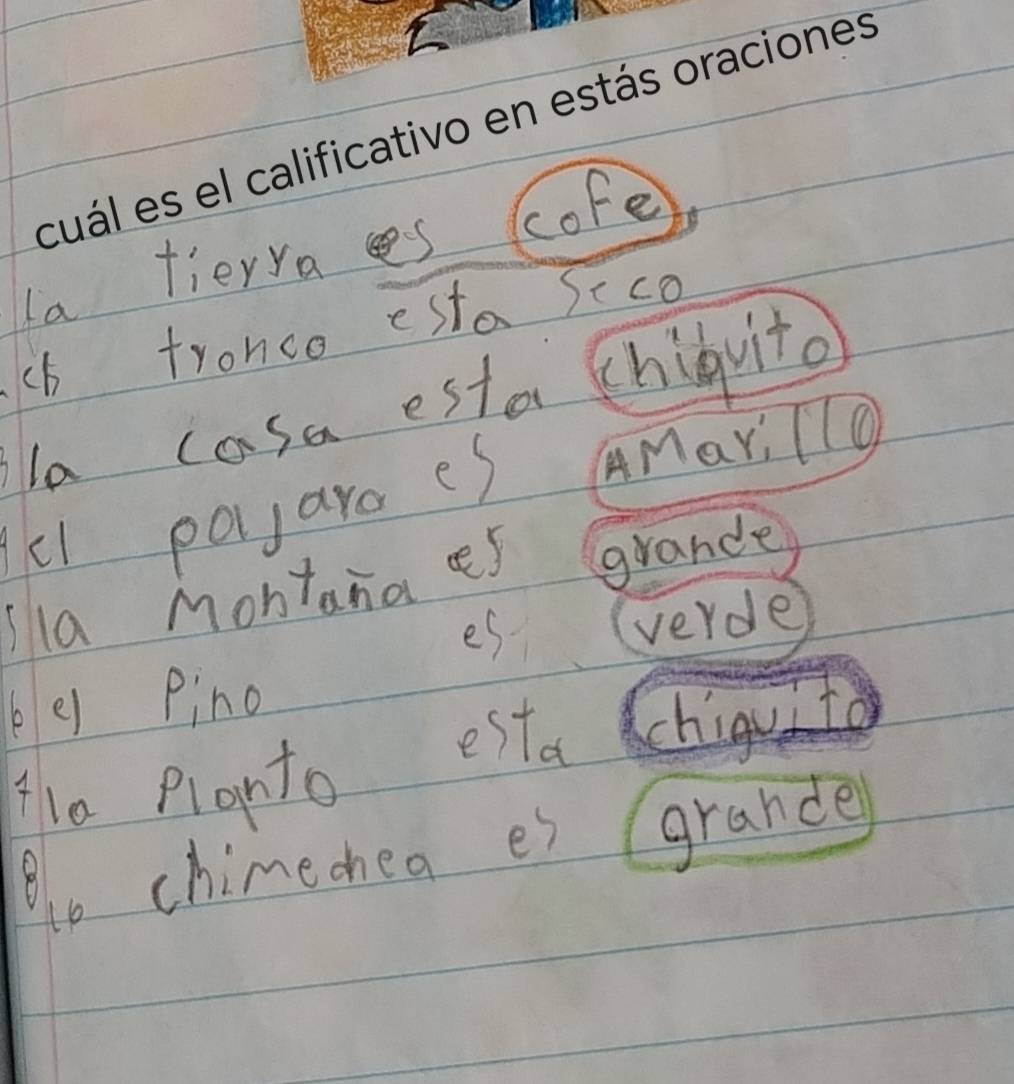 cuál es el calificativo en estás oraciones
la tierra es cofe
tronco esta seco
3 la casa esta chiquito
4 el pajaro es AMarillo
5 la Montaña es grande
6 el Pino es verde
7 la planto esta chiquito
8 la chimenea es grande